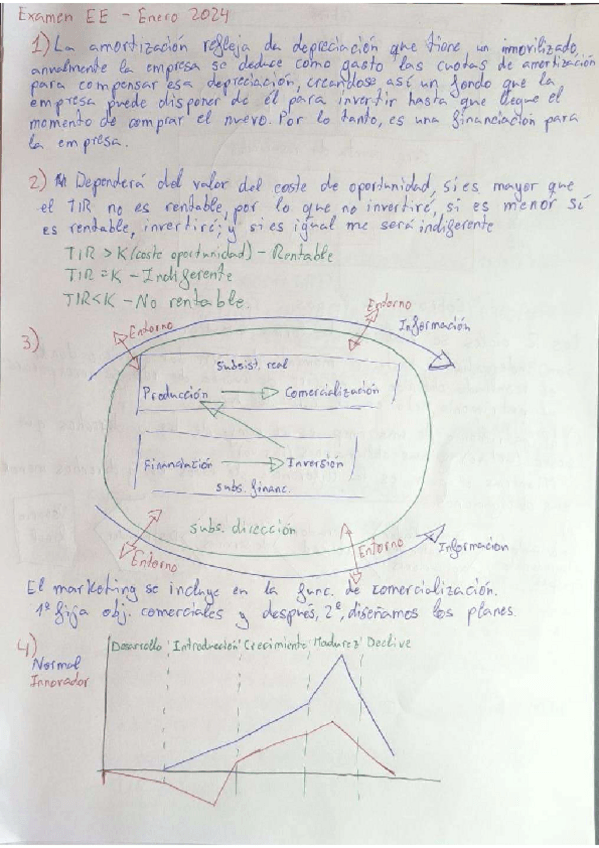 Examen EE - Enero 2024
1) La amortización refleja la depreciación que tiene un inmovilizado,
anualmente la empresa se deduce como gasto las cuotas de amortización
para compensar esa depreciación, creandose así un fondo que la
empresa puede disponer de él para invertir hasta que llegue el
momento de comprar el nuevo. Por lo tanto, es una financiación para
la empresa.
2) Dependerá del valor del coste de oportunidad, si es mayor que
el TIR no es rentable, por lo que no invertiré, si es menor sí
es rentable, invertiré; y si es igual me será indiferente
TIR > K (coste oportunidad) - Rentable
TIR = K - Indiferente
TIR < K - No rentable.
3)
Entorno
Entorno
Información
Subsist. real
Producción
Comercialización
Financiación
Inversión
subs. financ.
subs. dirección
Entorno
Entorno
Información
El marketing se incluye en la func. de comercialización.
1º fija obj. comerciales y después, 2º, diseñamos los planes.
4)
Desarrollo Introducción Crecimiento Madurez Declive
Normal
Innovador